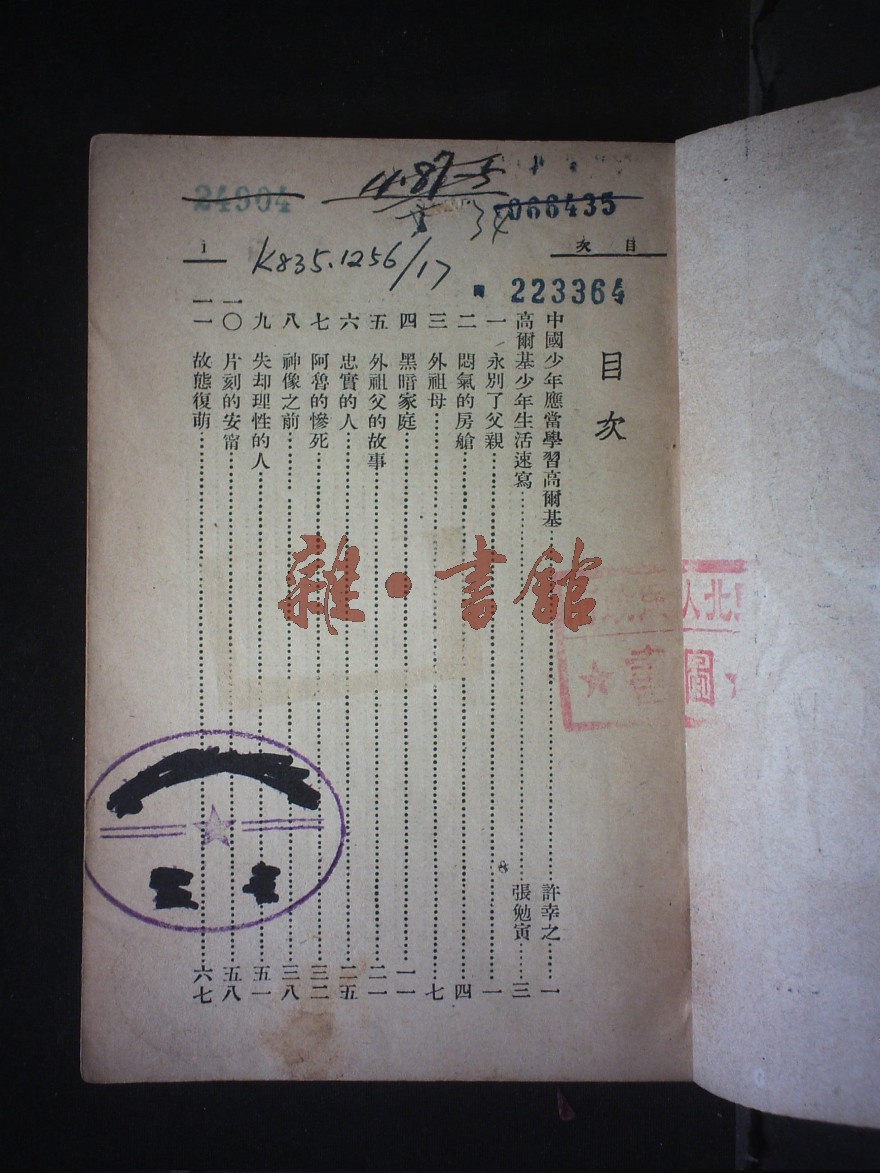 24904
4·87-5
34
066435
目次
1
K835.1256/17
223364
目次
中國少年應當學習高爾基……許幸之……一
高爾基少年生活速寫……張勉寅……三
一 永別了父親……一
二 悶氣的房艙……四
三 外祖母……七
四 黑暗家庭……一一
五 外祖父的故事……二一
六 忠實的人……二五
七 阿魯的慘死……三二
八 神像之前……三八
九 失却理性的人……五一
一〇 片刻的安甯……五八
一一 故態復萌……六七
雜·書館
北人
圖書